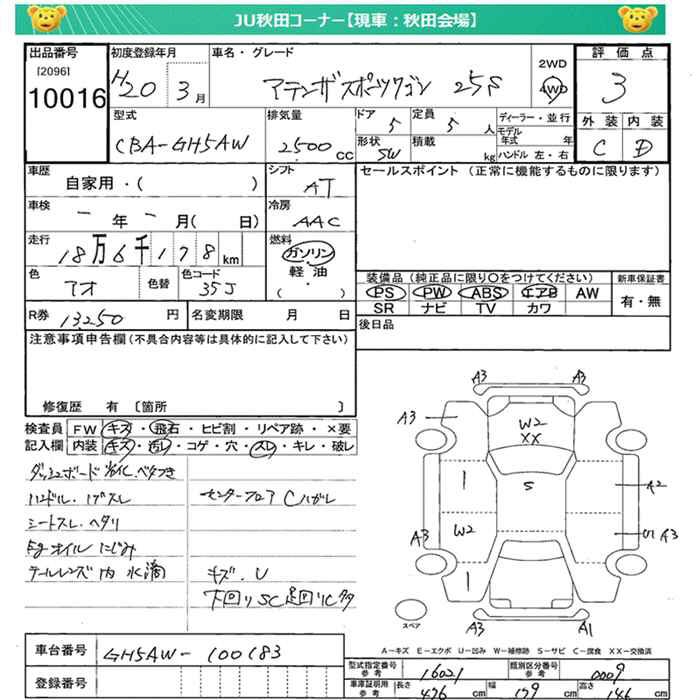 JU秋田コーナー【現車：秋田会場】
出品番号 初度登録年月 車名・グレード 2WD 4WD 評価点
[2096]
10016 H20 3月 アテンザスポーツワゴン 25S 3
型式 排気量 ドア 定員 ディーラー・並行 外装 内装
CBA-GH5AW 2500cc 5 5人 モデル年式 年 C D
形状 SW 積載 kg ハンドル 左・右
車歴 シフト セールスポイント（正常に機能するものに限ります）
自家用・（ ） AT
車検 冷房
－年－月（ 日） AAC
走行 燃料
18万6千178km ガソリン・軽油・（ ）
色 アオ 色替 色コード 35J
装備品（純正品に限り○をつけてください） 新車保証書
PS PW ABS エアB AW 有・無
SR ナビ TV カワ
R券 13,250円 名変期限 月 日 後日品
注意事項申告欄（不具合内容等は具体的に記入して下さい）
修復歴 有〔箇所 〕
検査員 FW キズ・飛石・ヒビ割・リペア跡・×要
記入欄 内装 キズ・汚レ・コゲ・穴・スレ・キレ・破レ
ダッシュボード劣化.ベタつき
ハンドル.
センターフロア Cハガレ
シートスレ.ヘタリ
Egオイルにじみ
テールレンズ内水滴 キズ.U
下回りSC足回りC
A3 A3
A3 W2 XX
S A2
W2
A3 U1 A3
A3 A1
スペア
A－キズ E－エクボ U－凹み W－補修跡 S－サビ C－腐食 XX－交換済
車台番号 GH5AW-100183
登録番号
型式指定番号 参考 16021 類別区分番号 参考 0009
車庫証明用 参考 長さ 476cm 幅 179cm 高さ 146cm